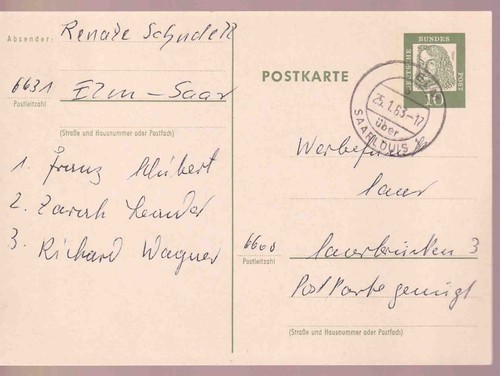 Absender: Renate Schudell
6631 Elm-Saar
Postleitzahl
(Straße und Hausnummer oder Postfach)
1. Franz Schubert
2. Zarah Leander
3. Richard Wagner
POSTKARTE
DEUTSCHE BUNDES POST
10
25.1.63-17
über
SAARLOUIS
Werbefunk
Saar
6600 Saarbrücken 3
Postleitzahl
Postkarte genügt
(Straße und Hausnummer oder Postfach)